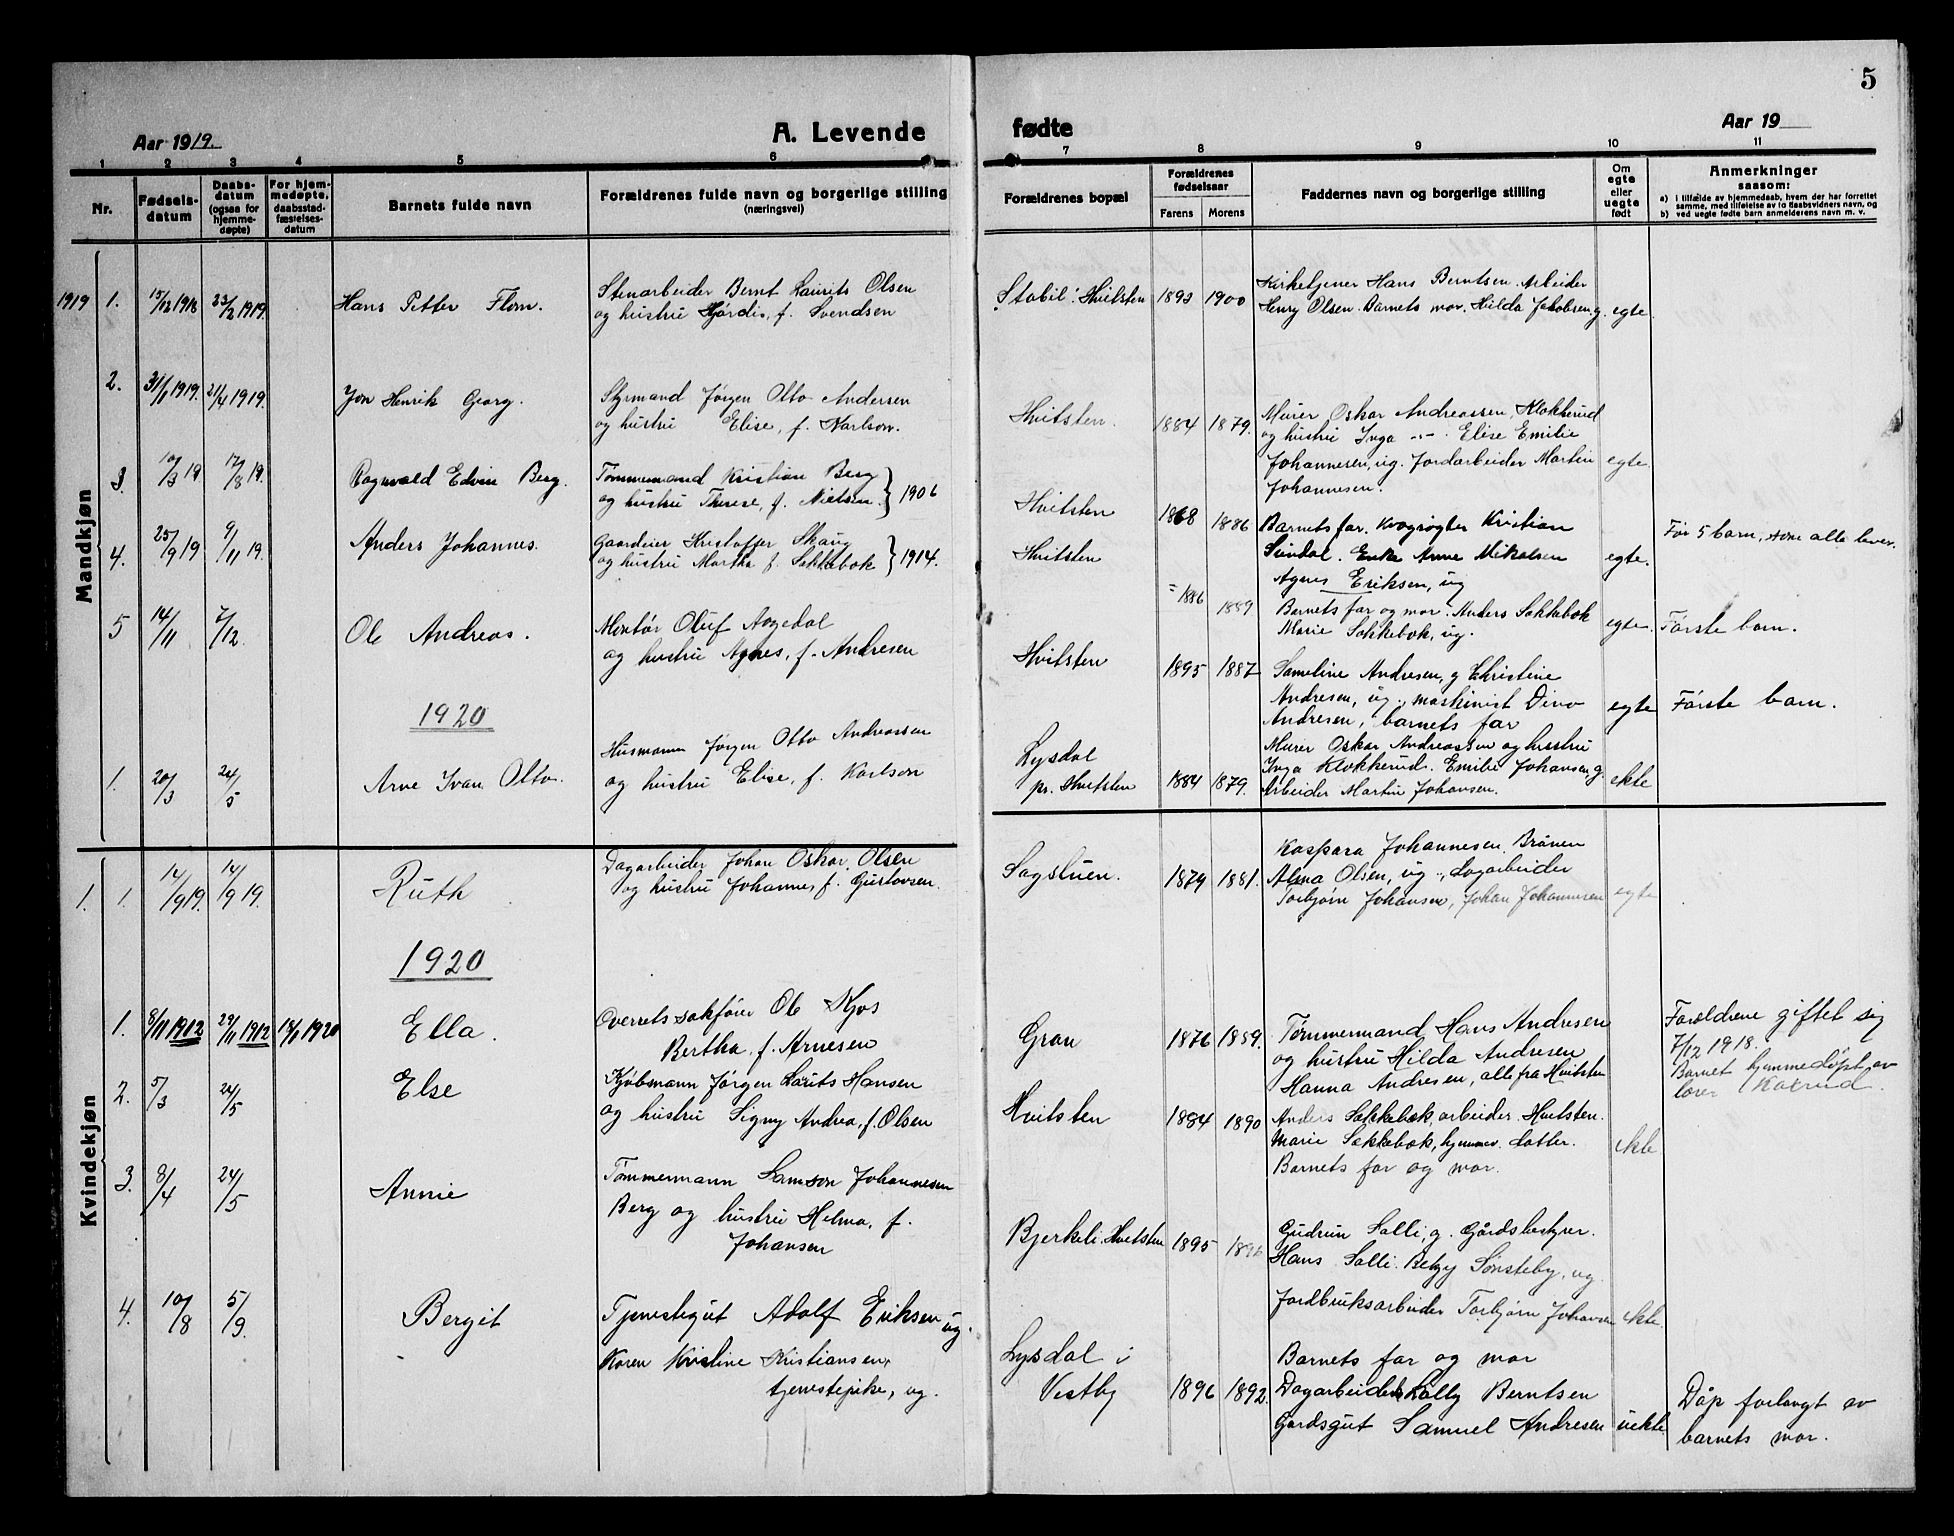 5
Aar 1919.
A. Levende
fødte
Aar 19
1 2 3 4 5 6 7 8 9 10 11
Nr.
Fødsels-
datum
Daabs-
datum
(ogsaa for
hjemme-
døpte)
For hjem-
medøpte,
daabsstad-
fæstelses-
datum
Barnets fulde navn
Forældrenes fulde navn og borgerlige stilling
(næringsvei)
Forældrenes bopæl
Forældrenes
fødselsaar
Farens Morens
Faddernes navn og borgerlige stilling
Om
egte
eller
uegte
født
Anmerkninger
saasom:
a) i tilfælde av hjemmedaab, hvem der har forrettet
samme, med tilføielse av to daabsvidners navn, og
b) ved uegte fødte barn anmelderens navn m. v.
Mandkjøn
1919 1. 15/12 1918 23/2 1919. Hans Petter Flom.
Stenarbeider Bernt Laurits Olsen
og hustru Hjørdis, f. Svendsen
Stabil: Hvitsten 1893 1900
Kirketjener Hans Berntsen. Arbeider
Henry Olsen. Barnets mor. Hilda Jakobsen, g. egte.
2. 31/1 1919. 21/4 1919. Jon Henrik Georg.
Styrmand Jørgen Otto Andersen
og hustru Elise, f. Karlson.
Hvitsten. 1884 1879.
Murer Oskar Andreassen, Klokkerud
og hustru Inga -"- Elise Emilie
Johannesen, ug. Jordarbeider Martin
Johannesen.
egte.
3. 10/3 19 17/8 19. Ragnvald Edvin Berg.
Tømmermand Kristian Berg
og hustru Therese, f. Nielsen. } 1906
Hvitsten 1868 1886
Barnets far. Kvægrøgter Kristian
Sundal. Enke Anne Mikalsen
Agnes Eriksen, ug
egte.
Før 5 barn, som alle lever.
4. 25/9 19 9/11 19. Anders Johannes.
Gaardeier Kristoffer Skaug
og hustru Martha f. Sækkebæk } 1914.
Hvitsten 1886 1889
Barnets far og mor. Anders Sækkebæk
Marie Sækkebæk, ug.
egte. Første barn.
5 14/11 7/12. Ole Andreas.
Montør Oluf Aagedal
og hustru Agnes, f. Andresen
Hvitsten 1895 1887
Sameline Andresen, g Christine
Andresen, ug., maskinist
Andresen, barnets far
egte Første barn.
1920
1. 20/3 24/5 Arne Ivan Otto.
Husmann Jørgen Otto Andreassen
og hustru Elise, f. Karlson
Lysdal
pr. Hvitsten 1884 1879.
Murer Oskar Andreassen og hustru
Inga Klokkerud. Emilie Johansen, g.
Arbeider Martin Johansen.
ekte
Kvindekjøn
1. 1. 14/9 19. 14/9 19. Ruth
Dagarbeider Johan Oskar Olsen
og hustru Johanne, f. Gustavsen.
Sagstuen. 1879 1881.
Kaspara Johannesen. Brønen
Alma Olsen, ug., Dagarbeider
Torbjørn Johansen, Johan Johannesen
egte
1920
1. 8/11 1912 29/11 1912 1920 Ella.
Overretssakfører Ole Kjos
Bertha, f. Arnesen
Gran 1876 1889.
Tømmermand Hans Andresen
og hustru Hilda Andresen
Hanna Andresen, alle fra Hvitsten
Foreldrene giftet sig
7/12 1918.
Barnet hjemmedøpt av
lærer
2. 5/3 24/5 Else
Kjøbmann Jørgen Laurits Hansen
og hustru Signy Andrea, f. Olsen
Hvitsten 1884 1890
Anders Sækkebæk, arbeider. Hvitsten.
Marie Sækkebæk, hjemmev. datter.
Barnets far og mor.
ekte
3. 8/4 24/5 Annie
Tømmermann Samson Johannesen
Berg og hustru Helma, f.
Johansen
Bjerkeli. Hvitsten 1895 1896
Gudrun Salli, g. Gårdsbestyrer.
Hans Salli. Betzy Sønsteby, ug.
Jordbruksarbeider Torbjørn Johansen
ekte.
4. 10/8 5/9. Bergit
Tjenestegut Adolf Eriksen ug.
Karen Kristine Kristiansen,
tjenestepike, ug.
Lysdal i
Vestby 1896 1892.
Barnets far og mor
Dagarbeider Lolly Berntsen
Gardsgut Samuel Andresen
uekte.
Dåp forlangt av
barnets mor.